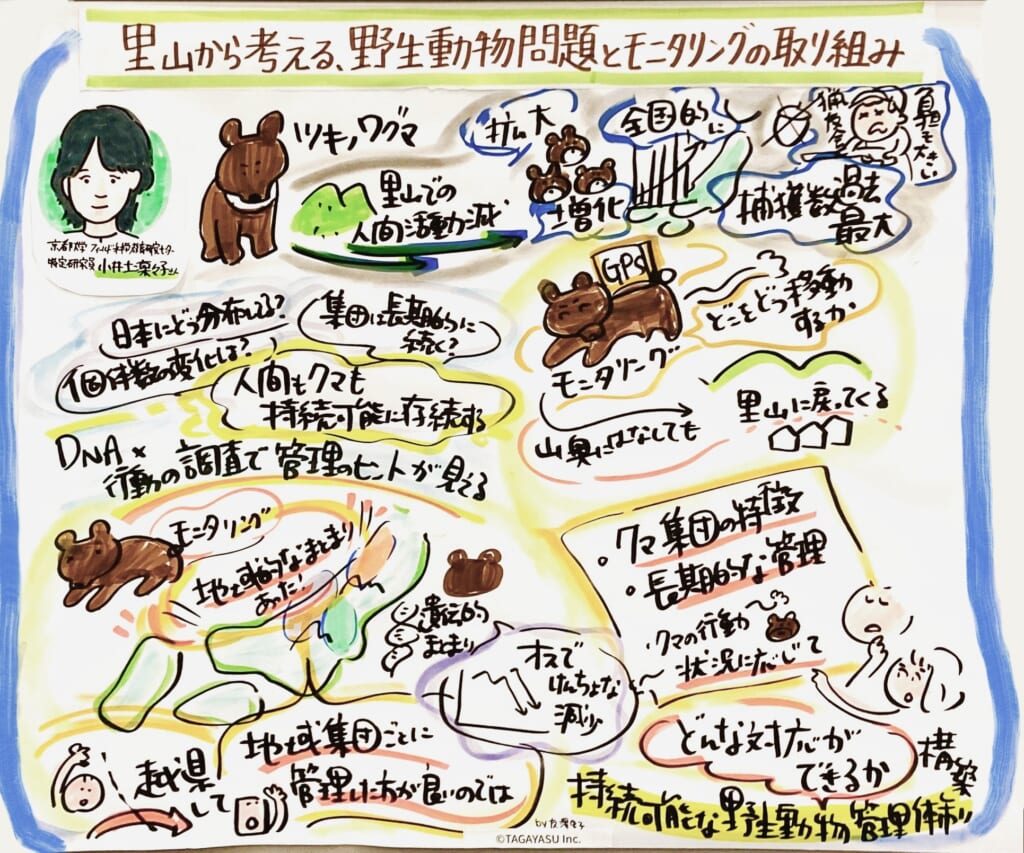 里山から考える、野生動物問題とモニタリングの取り組み
ツキノワグマ
里山での
人間活動減
拡大
増化
全国的に
捕獲数過去
最大
負担も大きい
京都大学
特定研究員 小井土凜々子さん
日本にどう分布してる?
個体数の変化は?
集団は長期的に
続く?
人間もクマも
持続可能に存続する
DNA×
行動の調査で管理のヒントが見える
GPS
モニタリング
どこをどう移動
するか
山奥にはなしても
里山に戻ってくる
モニタリング
地域的なまとまり
あった!
遺伝的
まとまり
オスで
けんちょな
減少
越県
して
地域集団ごとに
管理した方が良いのでは
・クマ集団の特徴
・長期的な管理
クマの行動
状況に応じて
どんな対応が
できるか
構築
持続可能な野生動物管理体制
©TAGAYASU Inc.